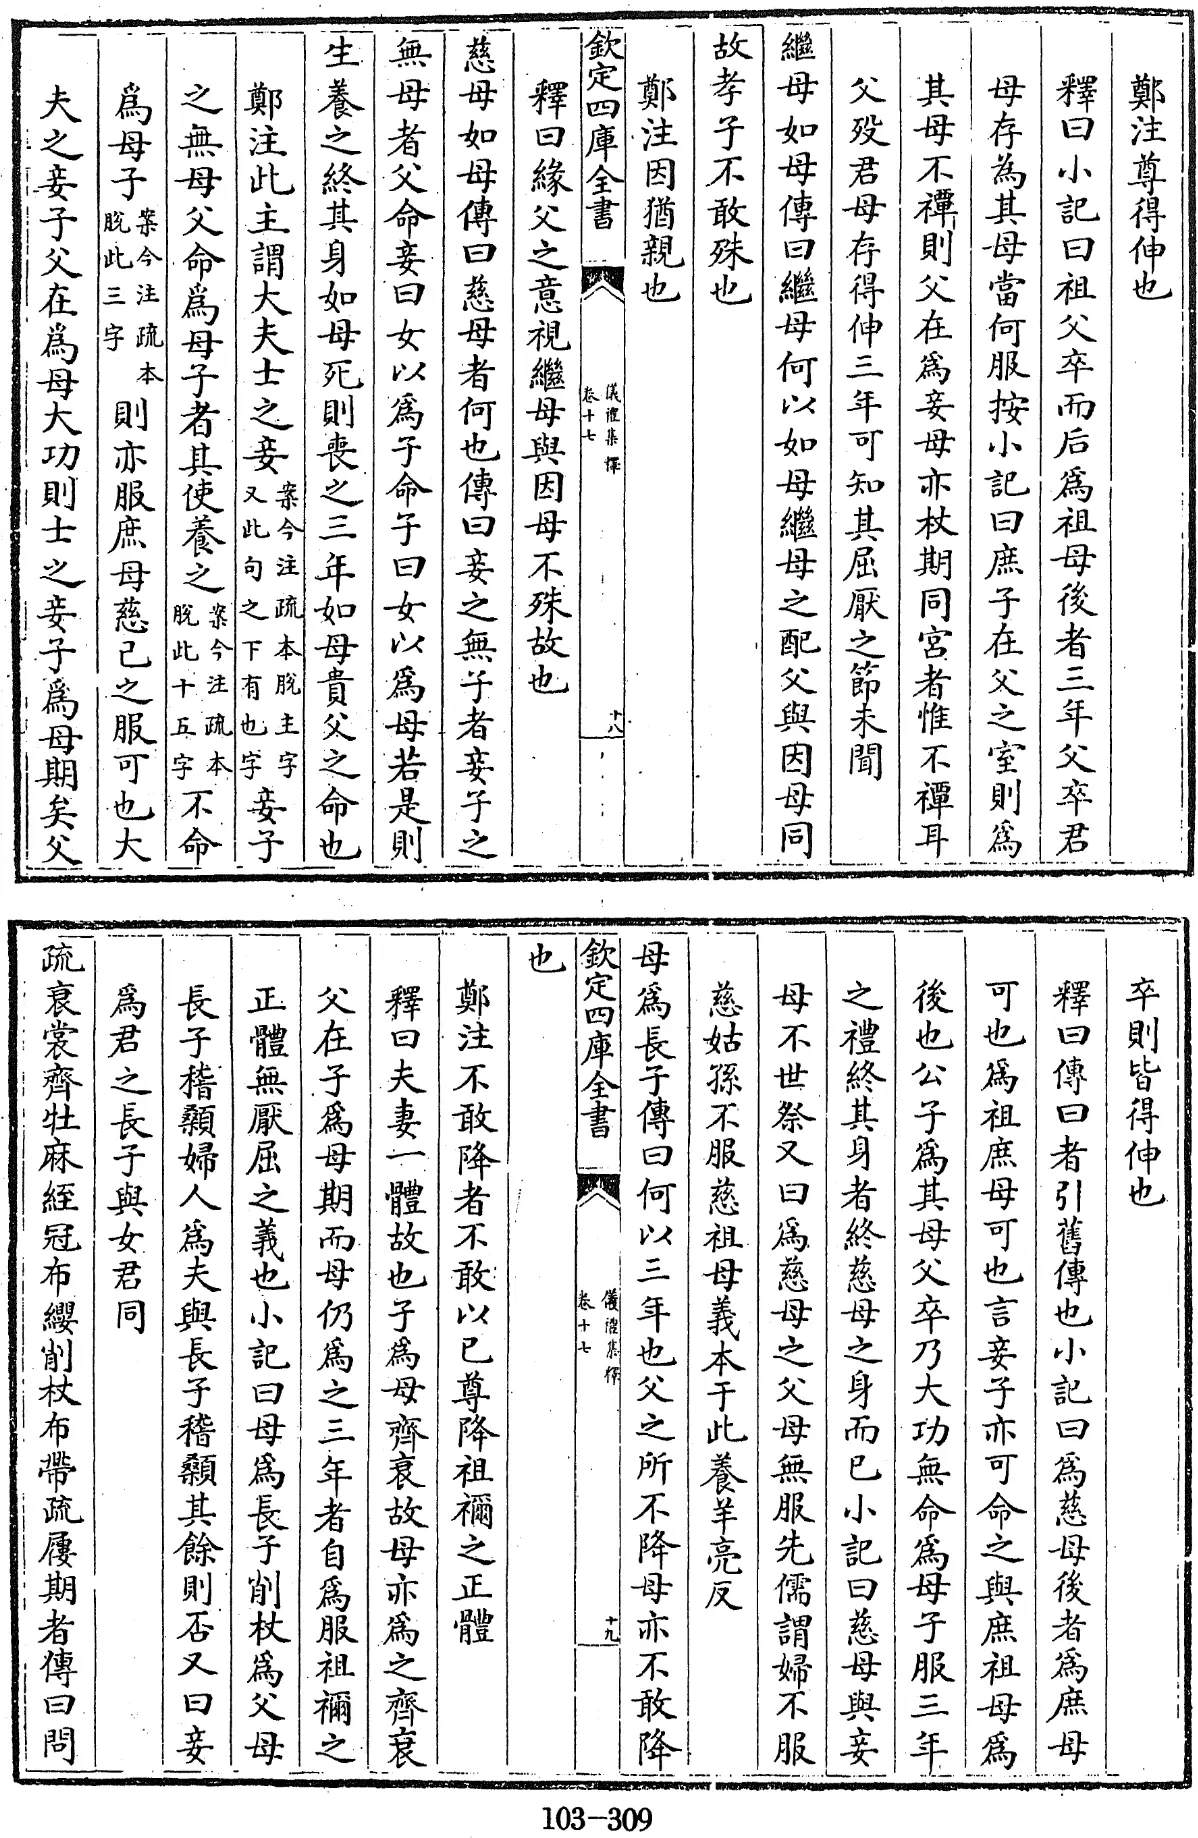 鄭注尊得伸也
釋曰小記曰祖父卒而后爲祖母後者三年父卒君
母存為其母當何服按小記曰庶子在父之室則爲
其母不禫則父在爲妾母亦杖期同宮者惟不禫耳
父歿君母存得伸三年可知其屈厭之節未聞
繼母如母傳曰繼母何以如母繼母之配父與因母同
故孝子不敢殊也
鄭注因猶親也
欽定四庫全書
儀禮集釋
卷十七
十八
釋曰緣父之意視繼母與因母不殊故也
慈母如母傳曰慈母者何也傳曰妾之無子者妾子之
無母者父命妾曰女以爲子命子曰女以爲母若是則
生養之終其身如母死則喪之三年如母貴父之命也
鄭注此主謂大夫士之妾案今注疏本脫主字又此句之下有也字妾子
之無母父命爲母子者其使養之案今注疏本脫此十五字不命
爲母子案今注疏本脫此三字則亦服庶母慈己之服可也大
夫之妾子父在爲母大功則士之妾子爲母期矣父
卒則皆得伸也
釋曰傳曰者引舊傳也小記曰爲慈母後者爲庶母
可也爲祖庶母可也言妾子亦可命之與庶祖母爲
後也公子爲其母父卒乃大功無命爲母子服三年
之禮終其身者終慈母之身而已小記曰慈母與妾
母不世祭又曰爲慈母之父母無服先儒謂婦不服
慈姑孫不服慈祖母義本于此養羊亮反
母爲長子傳曰何以三年也父之所不降母亦不敢降
欽定四庫全書
儀禮集釋
卷十七
十九
也
鄭注不敢降者不敢以已尊降祖禰之正體
釋曰夫妻一體故也子爲母齊衰故母亦爲之齊衰
父在子爲母期而母仍爲之三年者自爲服祖禰之
正體無厭屈之義也小記曰母爲長子削杖爲父母
長子稽顙婦人爲夫與長子稽顙其餘則否又曰妾
爲君之長子與女君同
疏衰裳齊牡麻絰冠布纓削杖布帶疏屨期者傳曰問
103-309